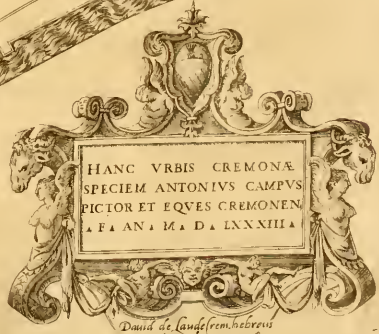 HANC VRBIS CREMONÆ
SPECIEM ANTONIVS CAMPVS
PICTOR ET EQVES CREMONEN
▴ F▴ AN▴ M▴ D▴ LXXXIII▴
Dauid de Laude Crem. hebreus